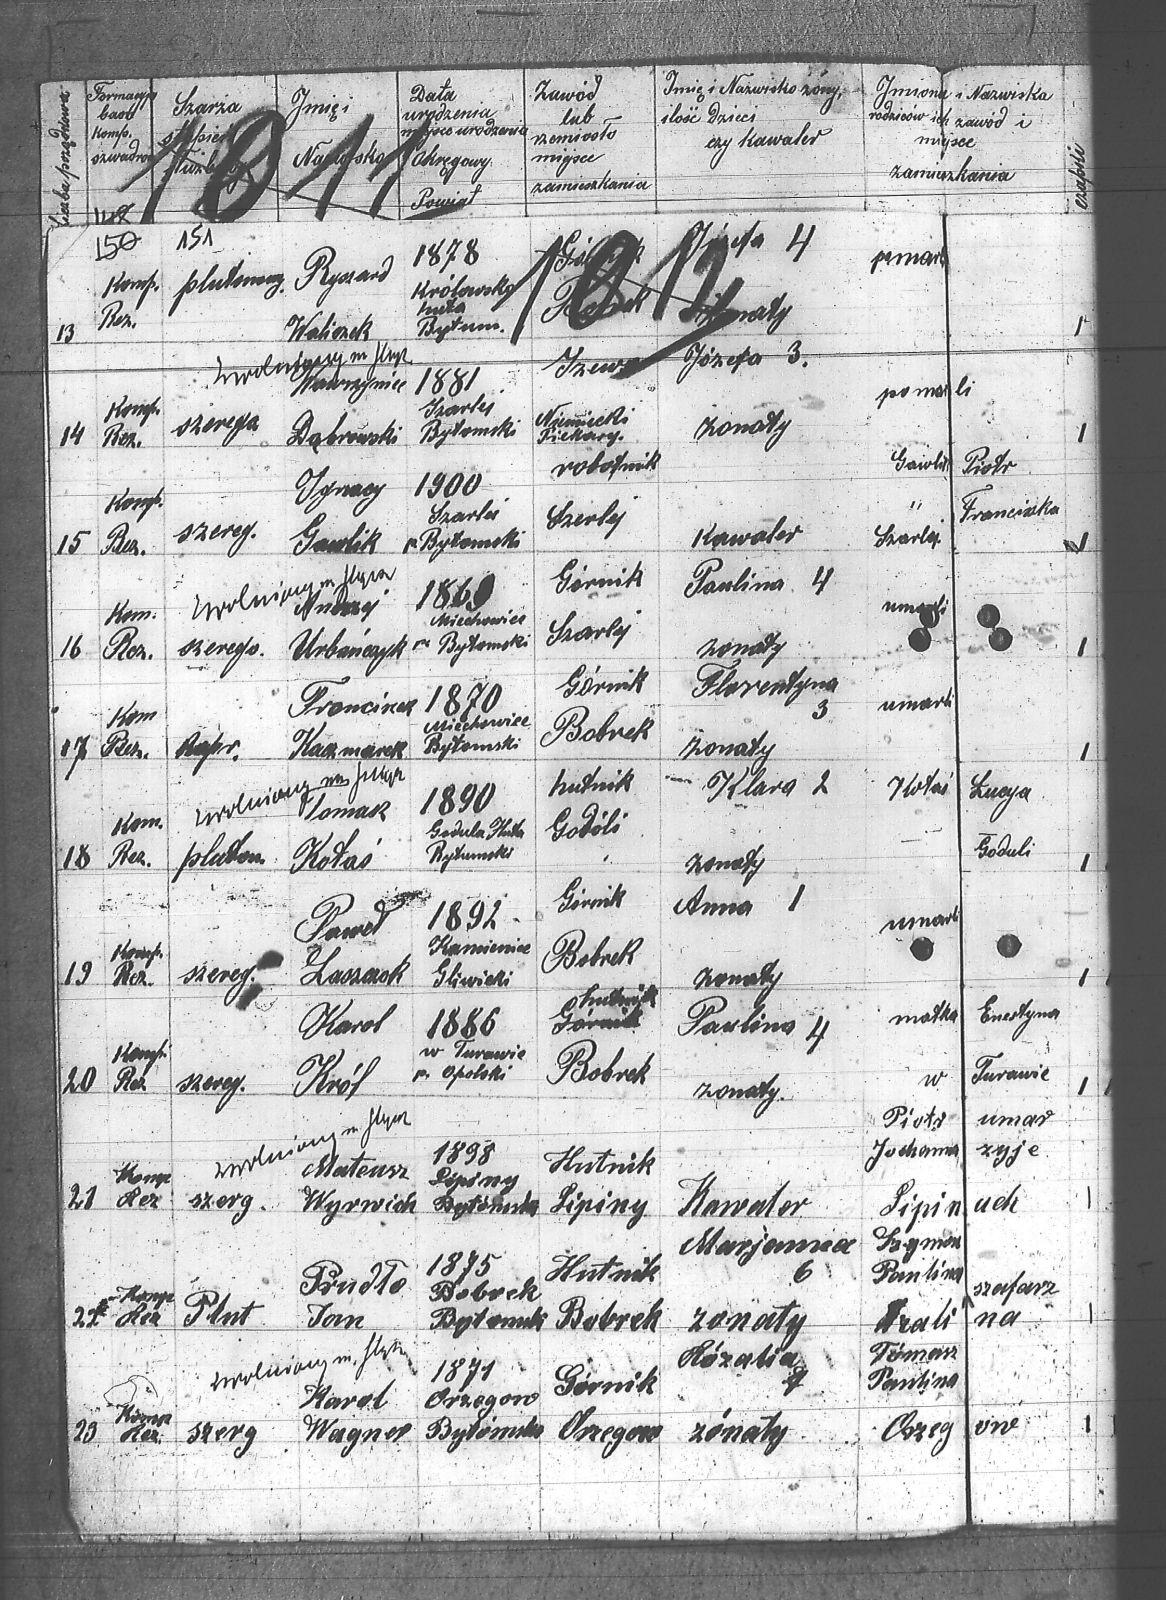 Liczba porządkowa
Formacya baon Komp. szwadron
Szarża stopień
Imię i Nazwisko
Data urodzenia miejsce urodzenia Okręgowy Powiat
Zawód lub rzemiosło miejsce zamieszkania
Imię i Nazwisko żony, ilość dzieci czy kawaler
Imiona i Nazwiska rodziców ich zawód i miejsce zamieszkania
czapki
1011
148
150 151
1012
Ryszard 1878 Józefa 4 pomarli
Komp. plutonowy Królewska Huta
13 Rez. Waliczek Bytom. żonaty 1
zwolniony m. Hlyer
Wawrzyniec 1881 Józefa 3. pomarli
Komp. Szarlej Niemiecki
14 Rez. szerego Dąbrowski Bytomski Piekary. żonaty 1
Ignacy 1900 robotnik Gawlik Piotr
Komp. Szarlej " Franciszka
15 Rez. szereg. Gawlik p. Bytomski Szerlej Kawaler Szarlej 1
zwolniony
Andrzej 1869 Górnik Paulina 4 umarli
Kom. Miechowice
16 Rez. szerego. Urbańczyk p. Bytomski Szarlej żonaty 1
Franciszek 1870 Górnik Florentyna 3 umarli
Kom Miechowice
17 Rez. kapr. Kaczmarek Bytomski Bobrek żonaty 1
zwolniony
Tomasz 1890 hutnik Klara 2 Kotaś Łucya
Kom. Godula Huta
18 Rez. pluton. Kotaś Bytomski Goduli żonaty Goduli 1
Paweł 1892 Górnik Anna 1 umarli
Komp. Kamieniec
19 Rez. szereg. Łaszczok Gliwicki Bobrek żonaty 1
hutnik
Karol 1886 Górnik Paulina 4 matka Ernestyna
Komp. w Turawie
20 Rez szereg. Król p. Opolski Bobrek żonaty. w Turawie 1
zwolniony Piotr umar
Mateusz 1898 Hutnik Johanna zyje
Kompe Lipiny
21 Rez szerg. Wyrwich Bytómska Lipiny Kawaler Lipinach 1
Marjanna Szymon
Prudło 1875 Hutnik 6 Paulina szafarz
Kompe Bobrek
22 Rez Plut Jan Bytomsk Bobrek zonaty na 1
zwolniony Rózalia Tómasz
Karol 1871 Górnik Paulina
Kompe Orzegow
23 Rez. szerg Wagner Bytómska Orzegow zónaty Orzegow 1